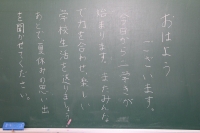 おはよう
ございます。
今日から二学期が
始まります。またみんな
で力を合わせ楽しい
学校生活を送りましょう
あとで、夏休みの思い出
を聞かせてください。